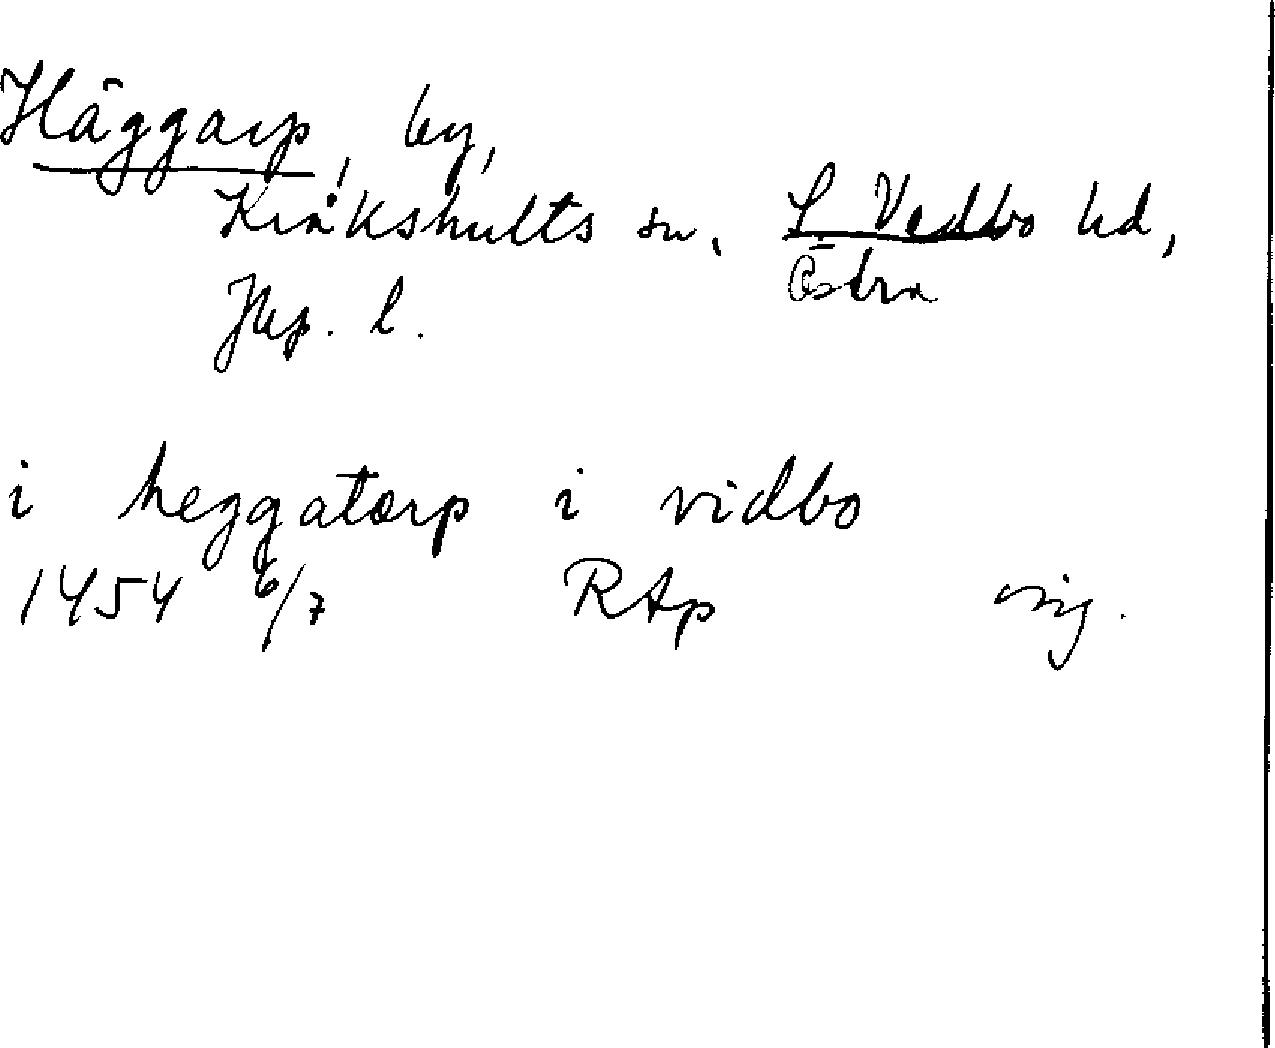 Häggarp, by,
Kråkshults sn, S. Vedbo hd,
Östra
Jkp. l.
i heggatorp i vidbo
1454 6/7 RAp orig.